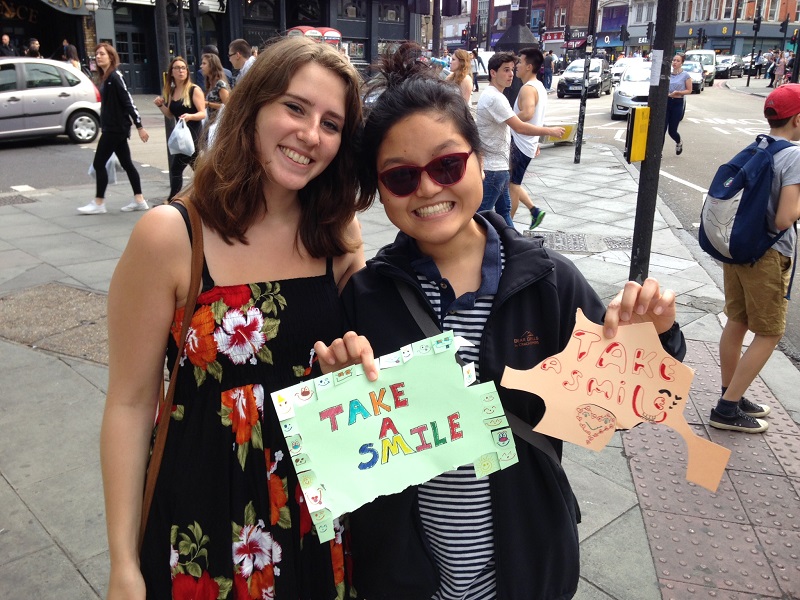 TAKE
A
SMILE
TAKE
A SMILE